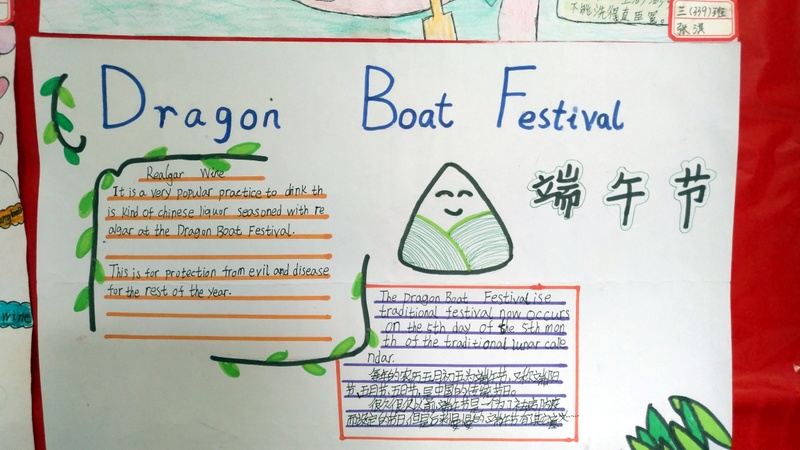 不能洗得直由罩。
三(339)班
张淇
Dragon Boat Festival
端午节
Realgar Wine
It is a very popular practice to dink th
is kind of chinese liquor seasoned with re
algar at the Dragon Boat Festival.
This is for protection from evil and disease
for the rest of the year.
The Dragon Boat Festival ise
traditional festival now occurs
on the 5th day of the 5th mon
th of the traditional lunar cale
ndar.
每年的农历五月初五为端午节,又称端阳
节、五月节、五日节,是中国的传统节日。
很久很久以前,端午节是一个为了
而 的节日,但是后来
wine